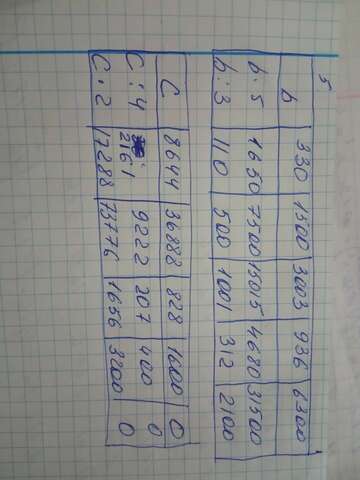 5
b 330 1500 3003 936 6300
b · 5 1650 7500 15015 4680 31500
b : 3 110 500 1001 312 2100
C 8644 36888 828 1600 0
C : 4 2161 9222 207 400 0
C · 2 17288 73776 1656 3200 0